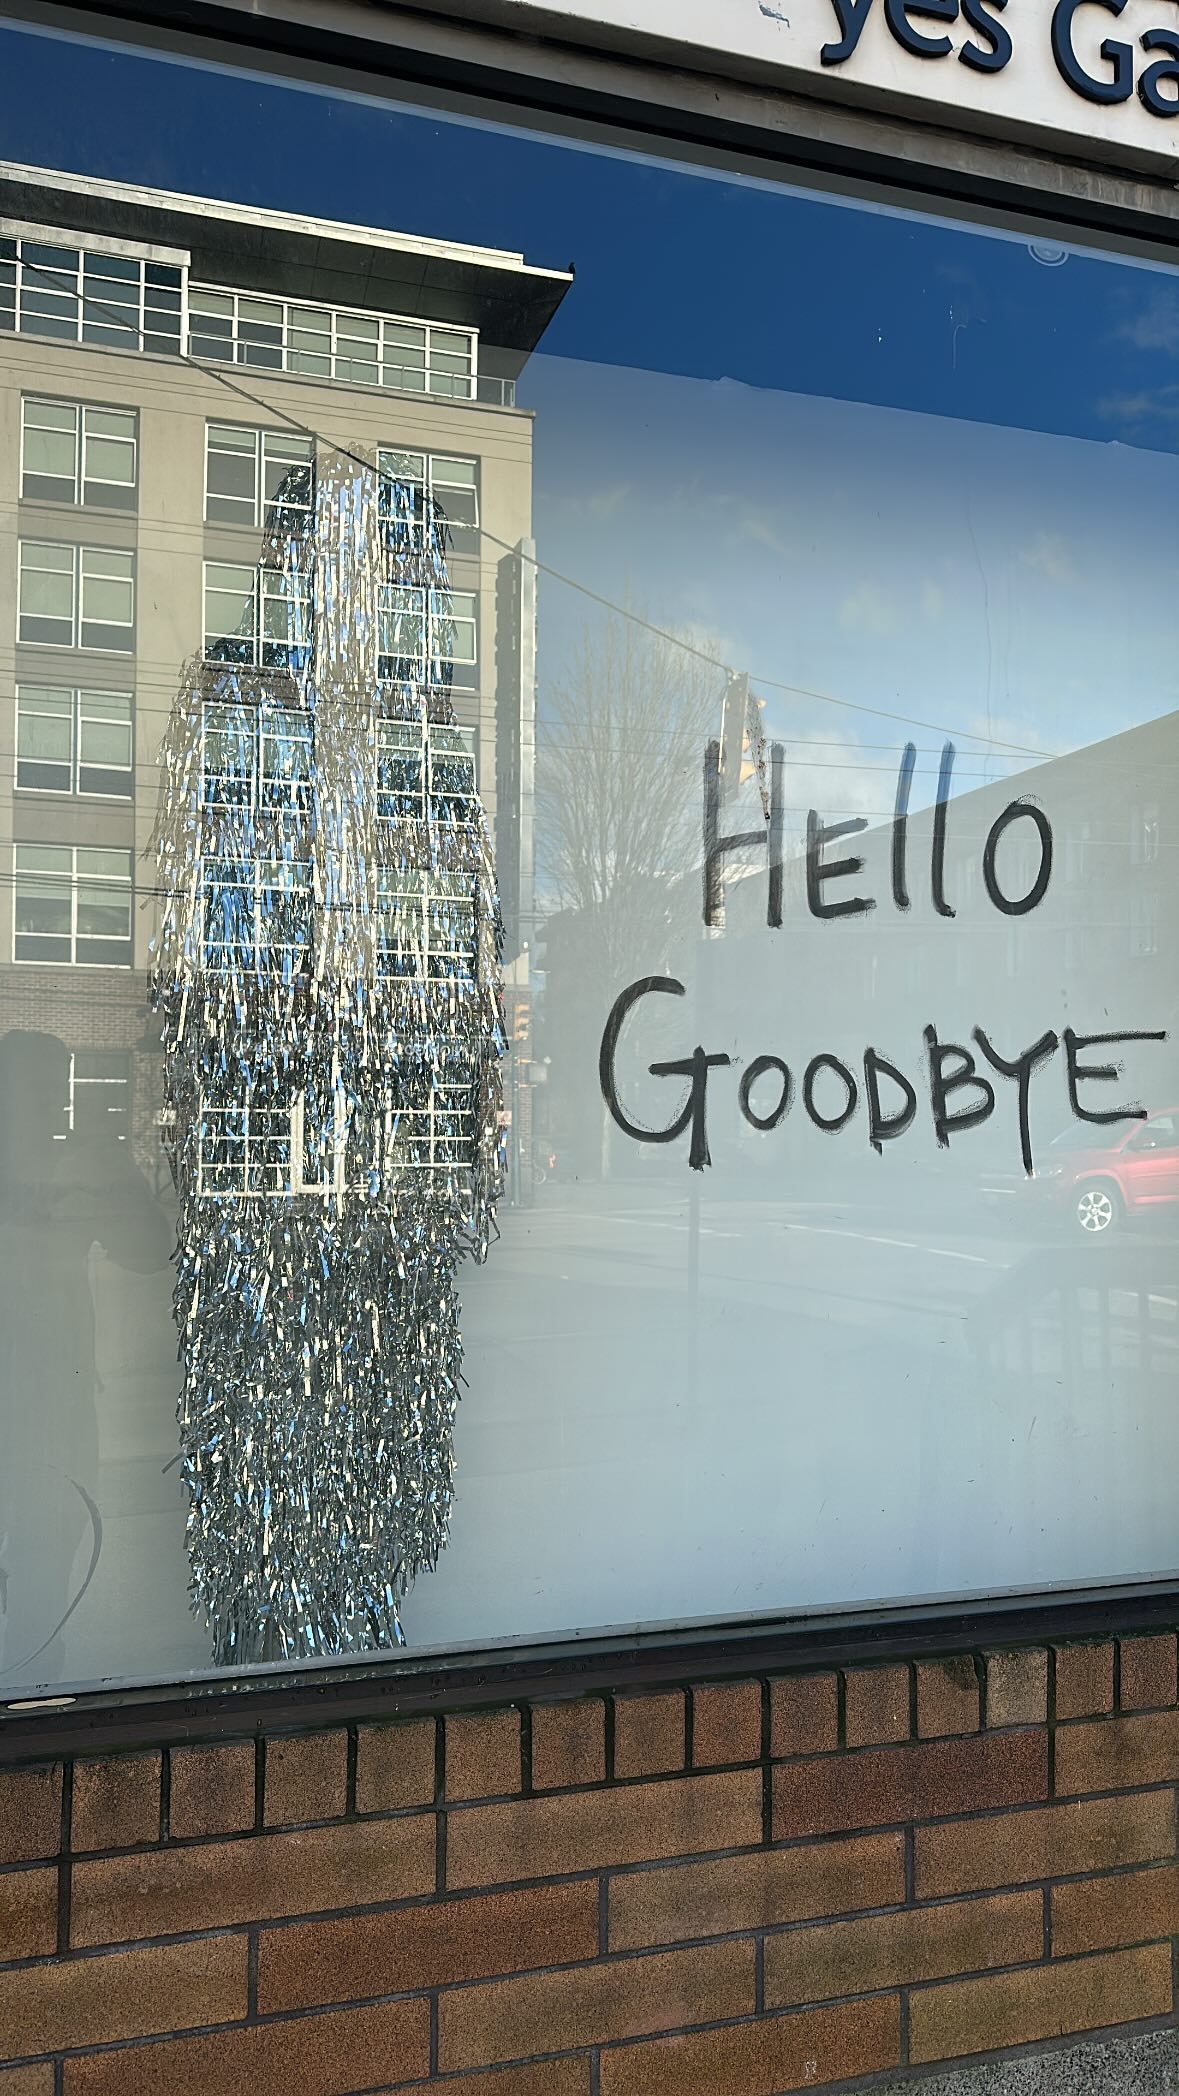 yes Ga
Hello
GOODBYE